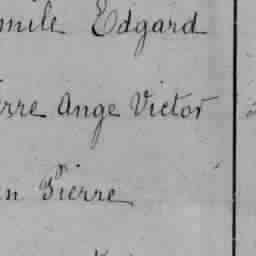 mile Edgard
erre Ange Victor
n Pierre